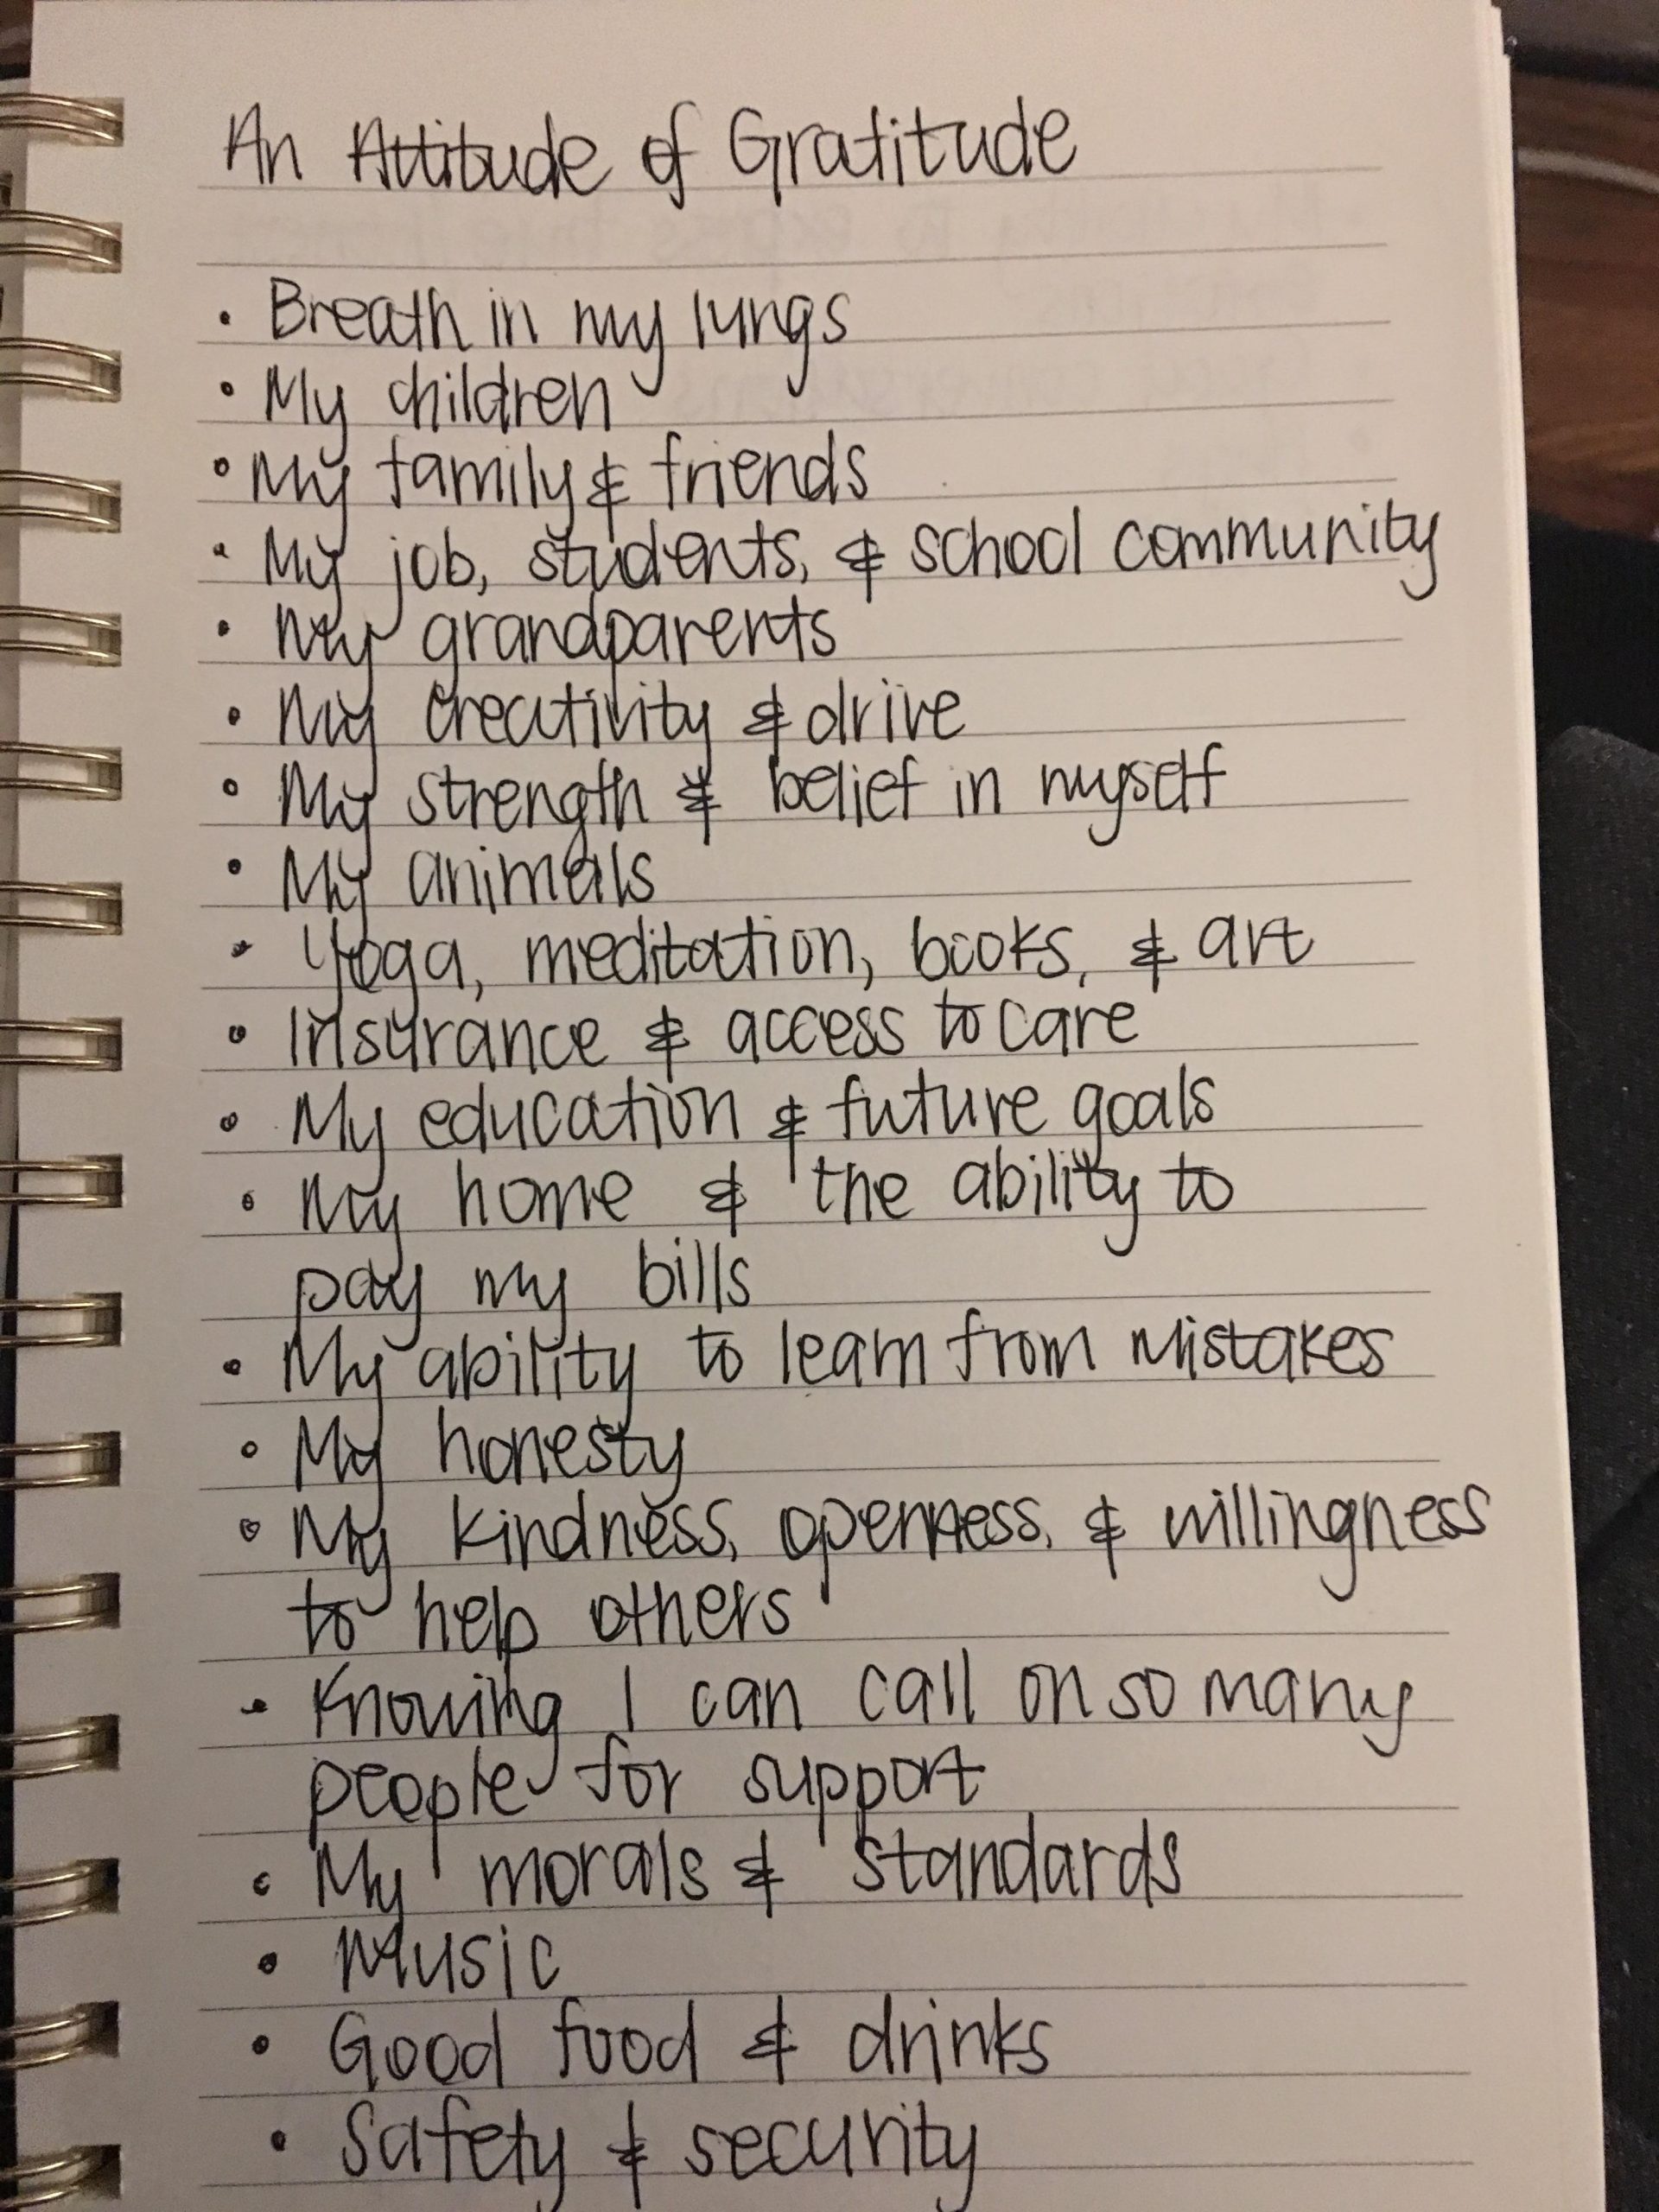 An Attitude of Gratitude
• Breath in my lungs
• My children
• My family & friends
• My job, students, & school community
• My grandparents
• My creativity & drive
• My strength & belief in myself
• My animals
• Yoga, meditation, books, & art
• Insurance & access to care
• My education & future goals
• My home & the ability to
pay my bills
• My ability to learn from mistakes
• My honesty
• My kindness, openness, & willingness
to help others
• Knowing I can call on so many
people for support
• My morals & standards
• Music
• Good food & drinks
• Safety & security